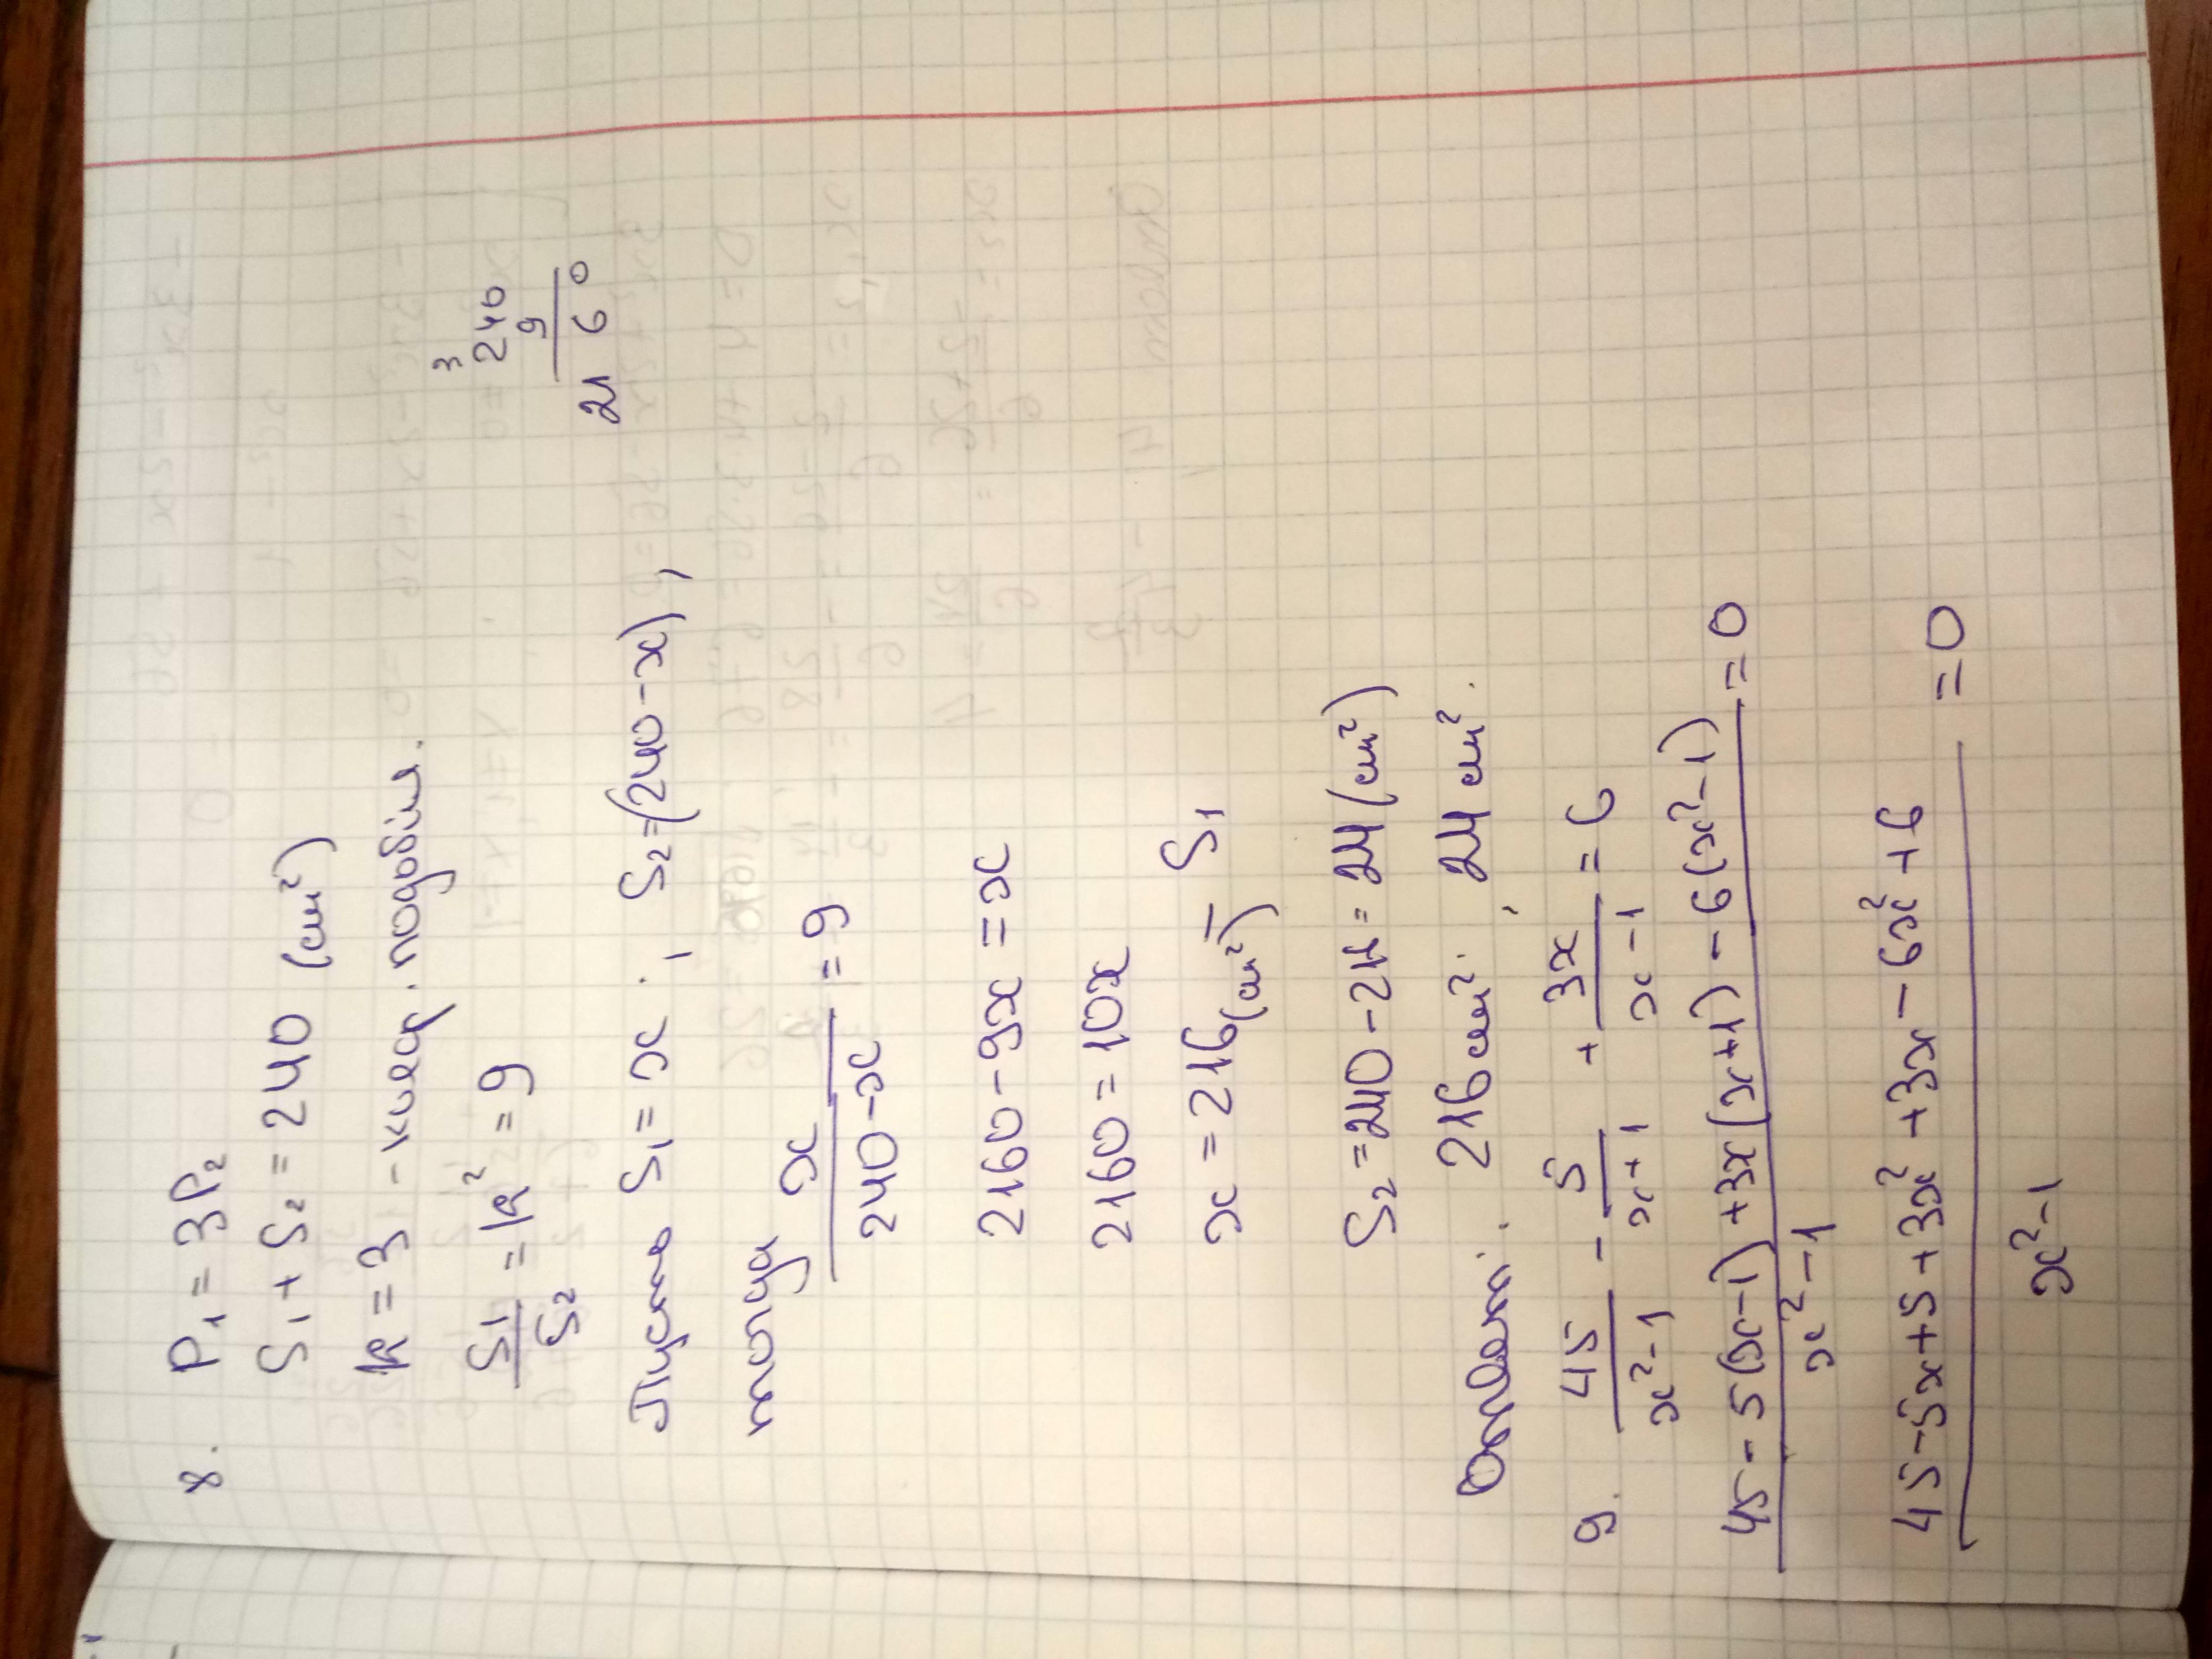 8. P₁ = 3P₂
S₁ + S₂ = 240 (см²)
k = 3 - коеф. подобия.
S₁/S₂ = k² = 9
3
240
9
21 6 0
Пусть S₁ = x ; S₂ = (240 - x),
тогда x/(240 - x) = 9
2160 - 9x = x
2160 = 10x
x = 216 (см²) - S₁
S₂ = 240 - 216 = 24 (см²)
Ответ: 216 см², 24 см².
9. 45/(x² - 1) - 5/(x + 1) + 3x/(x - 1) = 6
(45 - 5(x - 1) + 3x(x + 1) - 6(x² - 1))/(x² - 1) = 0
(45 - 5x + 5 + 3x² + 3x - 6x² + 6)/(x² - 1) = 0